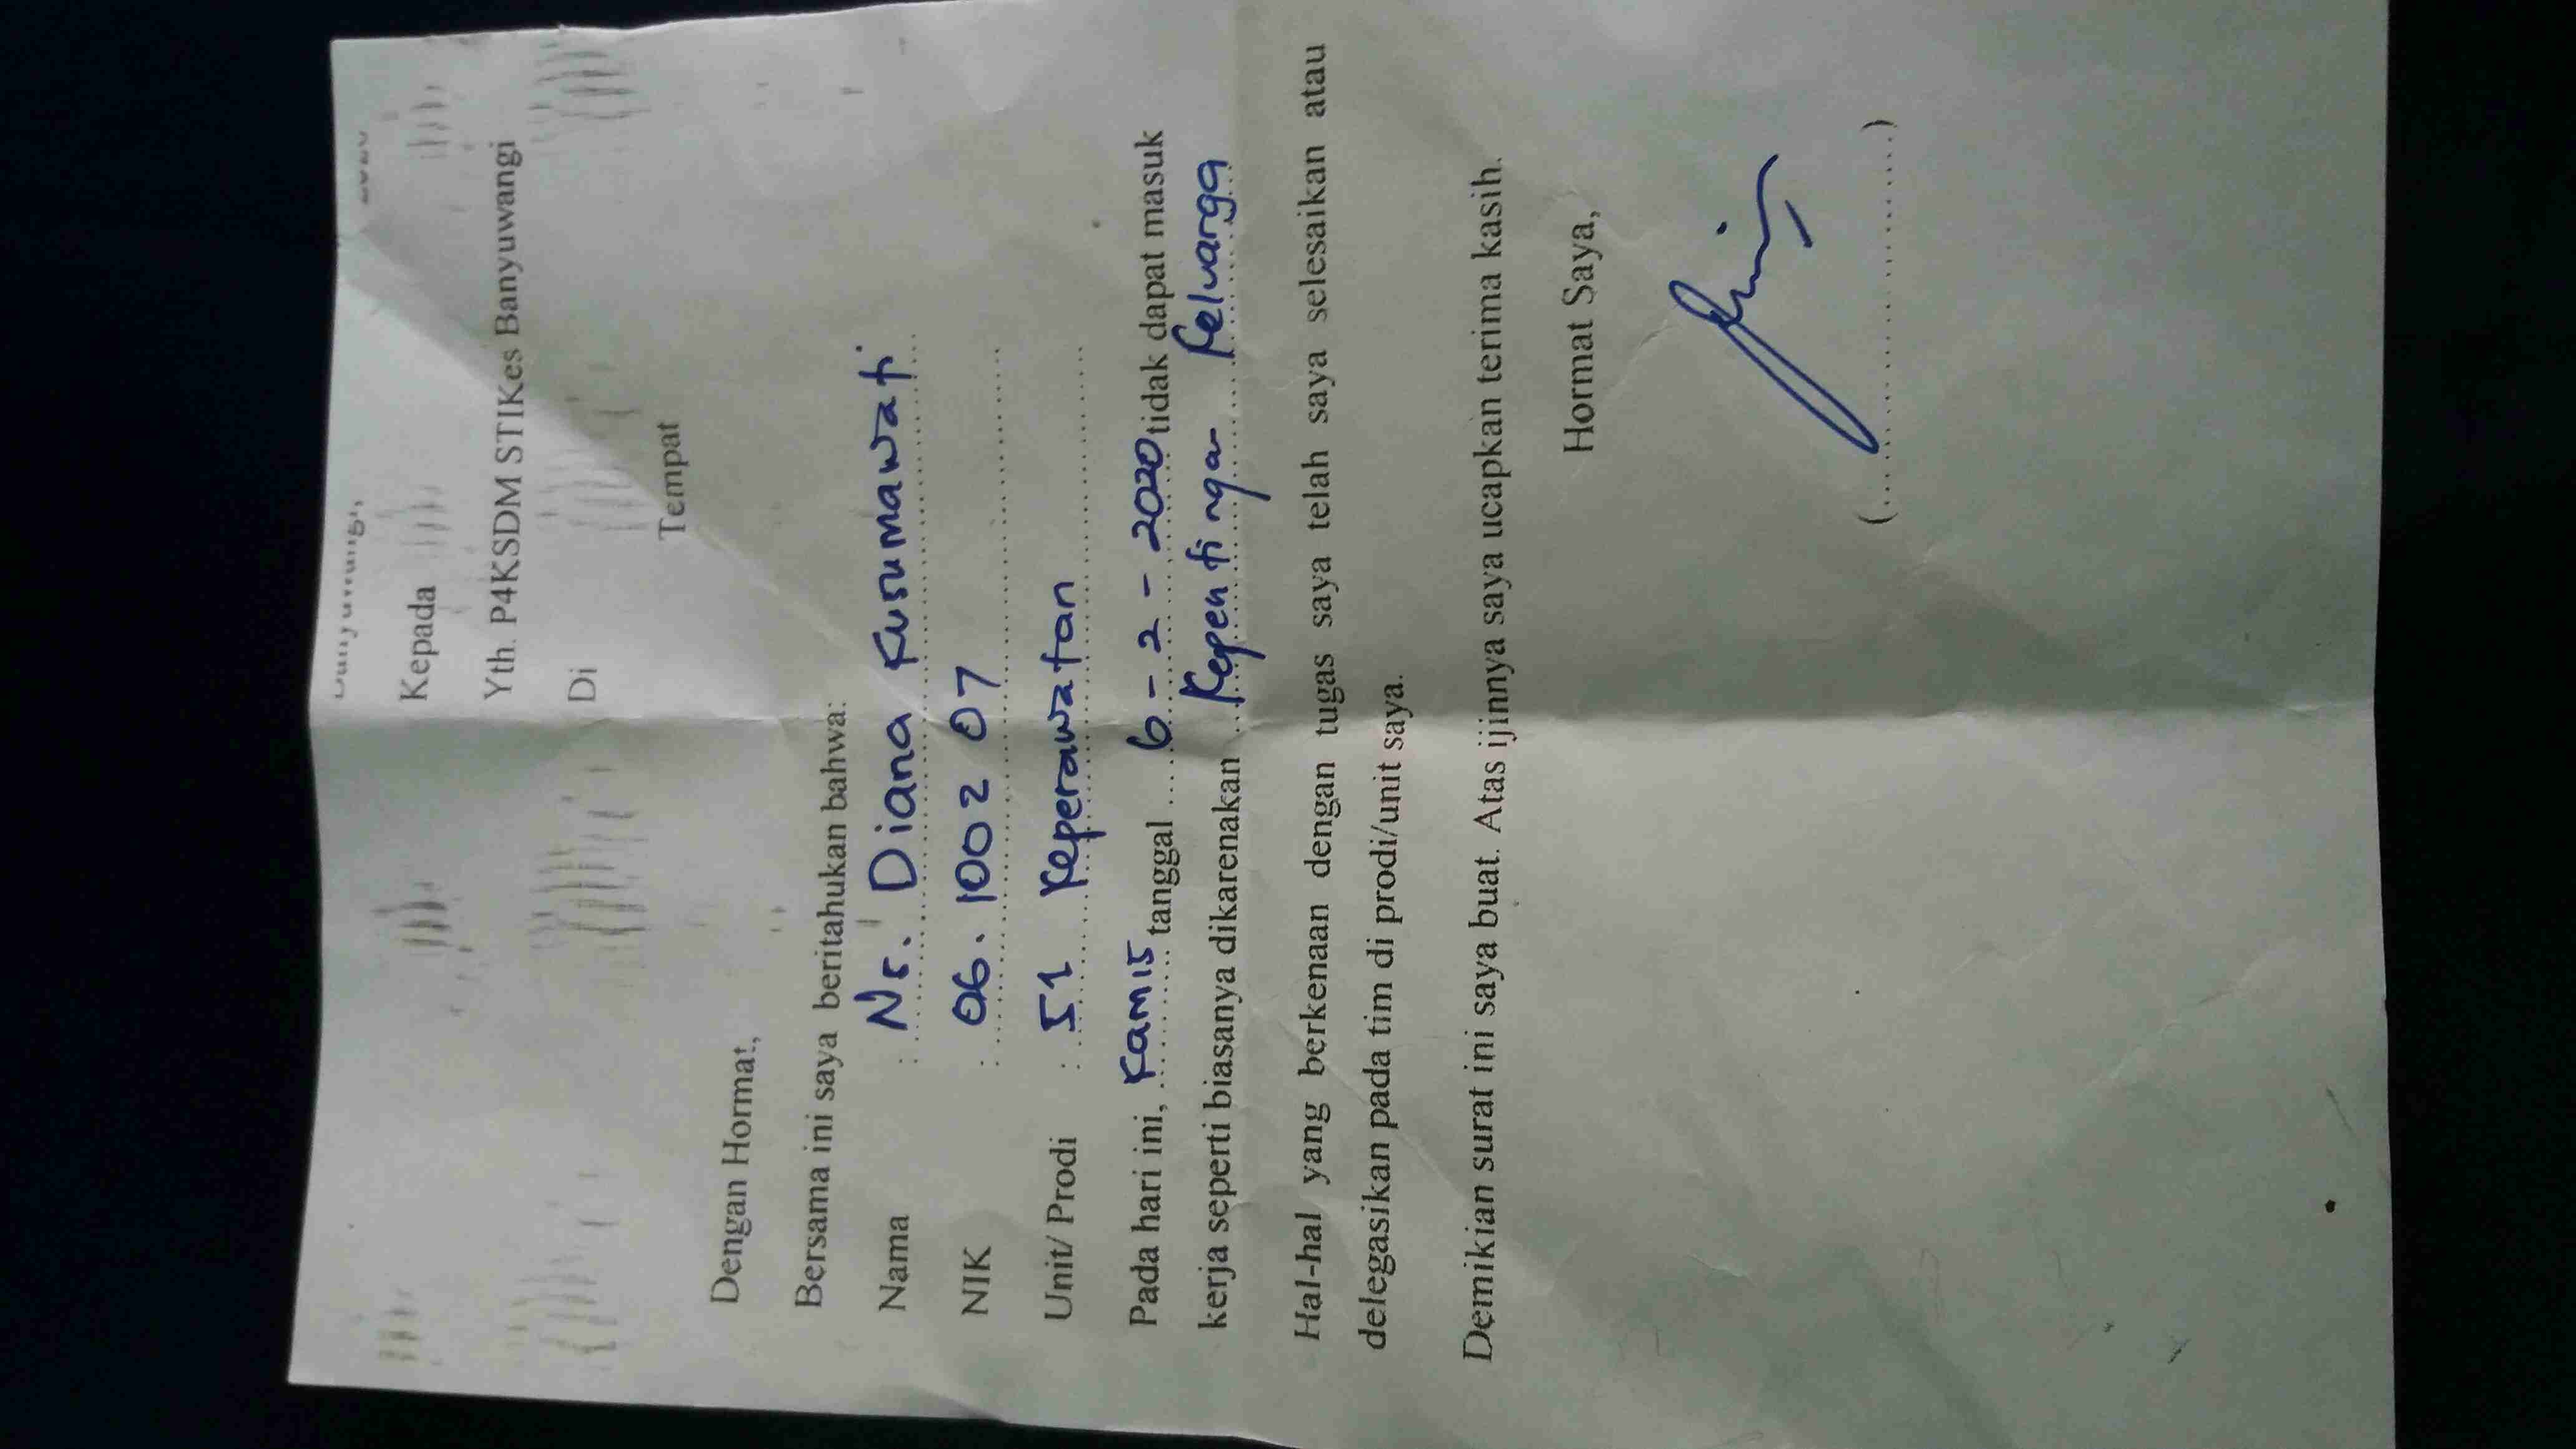 Banyuwangi, 2020
Kepada
Yth. P4KSDM STIKes Banyuwangi
Di
Tempat
Dengan Hormat,
Bersama ini saya beritahukan bahwa:
Nama : Ns. Diana Kusumawati
NIK : 06. 1002 07
Unit/ Prodi : S1 Keperawatan
Pada hari ini, Kamis tanggal 6 - 2 - 2020 tidak dapat masuk
kerja seperti biasanya dikarenakan Kepentingan Keluarga
Hal-hal yang berkenaan dengan tugas saya telah saya selesaikan atau
delegasikan pada tim di prodi/unit saya.
Demikian surat ini saya buat. Atas ijinnya saya ucapkan terima kasih.
Hormat Saya,
(..........................)